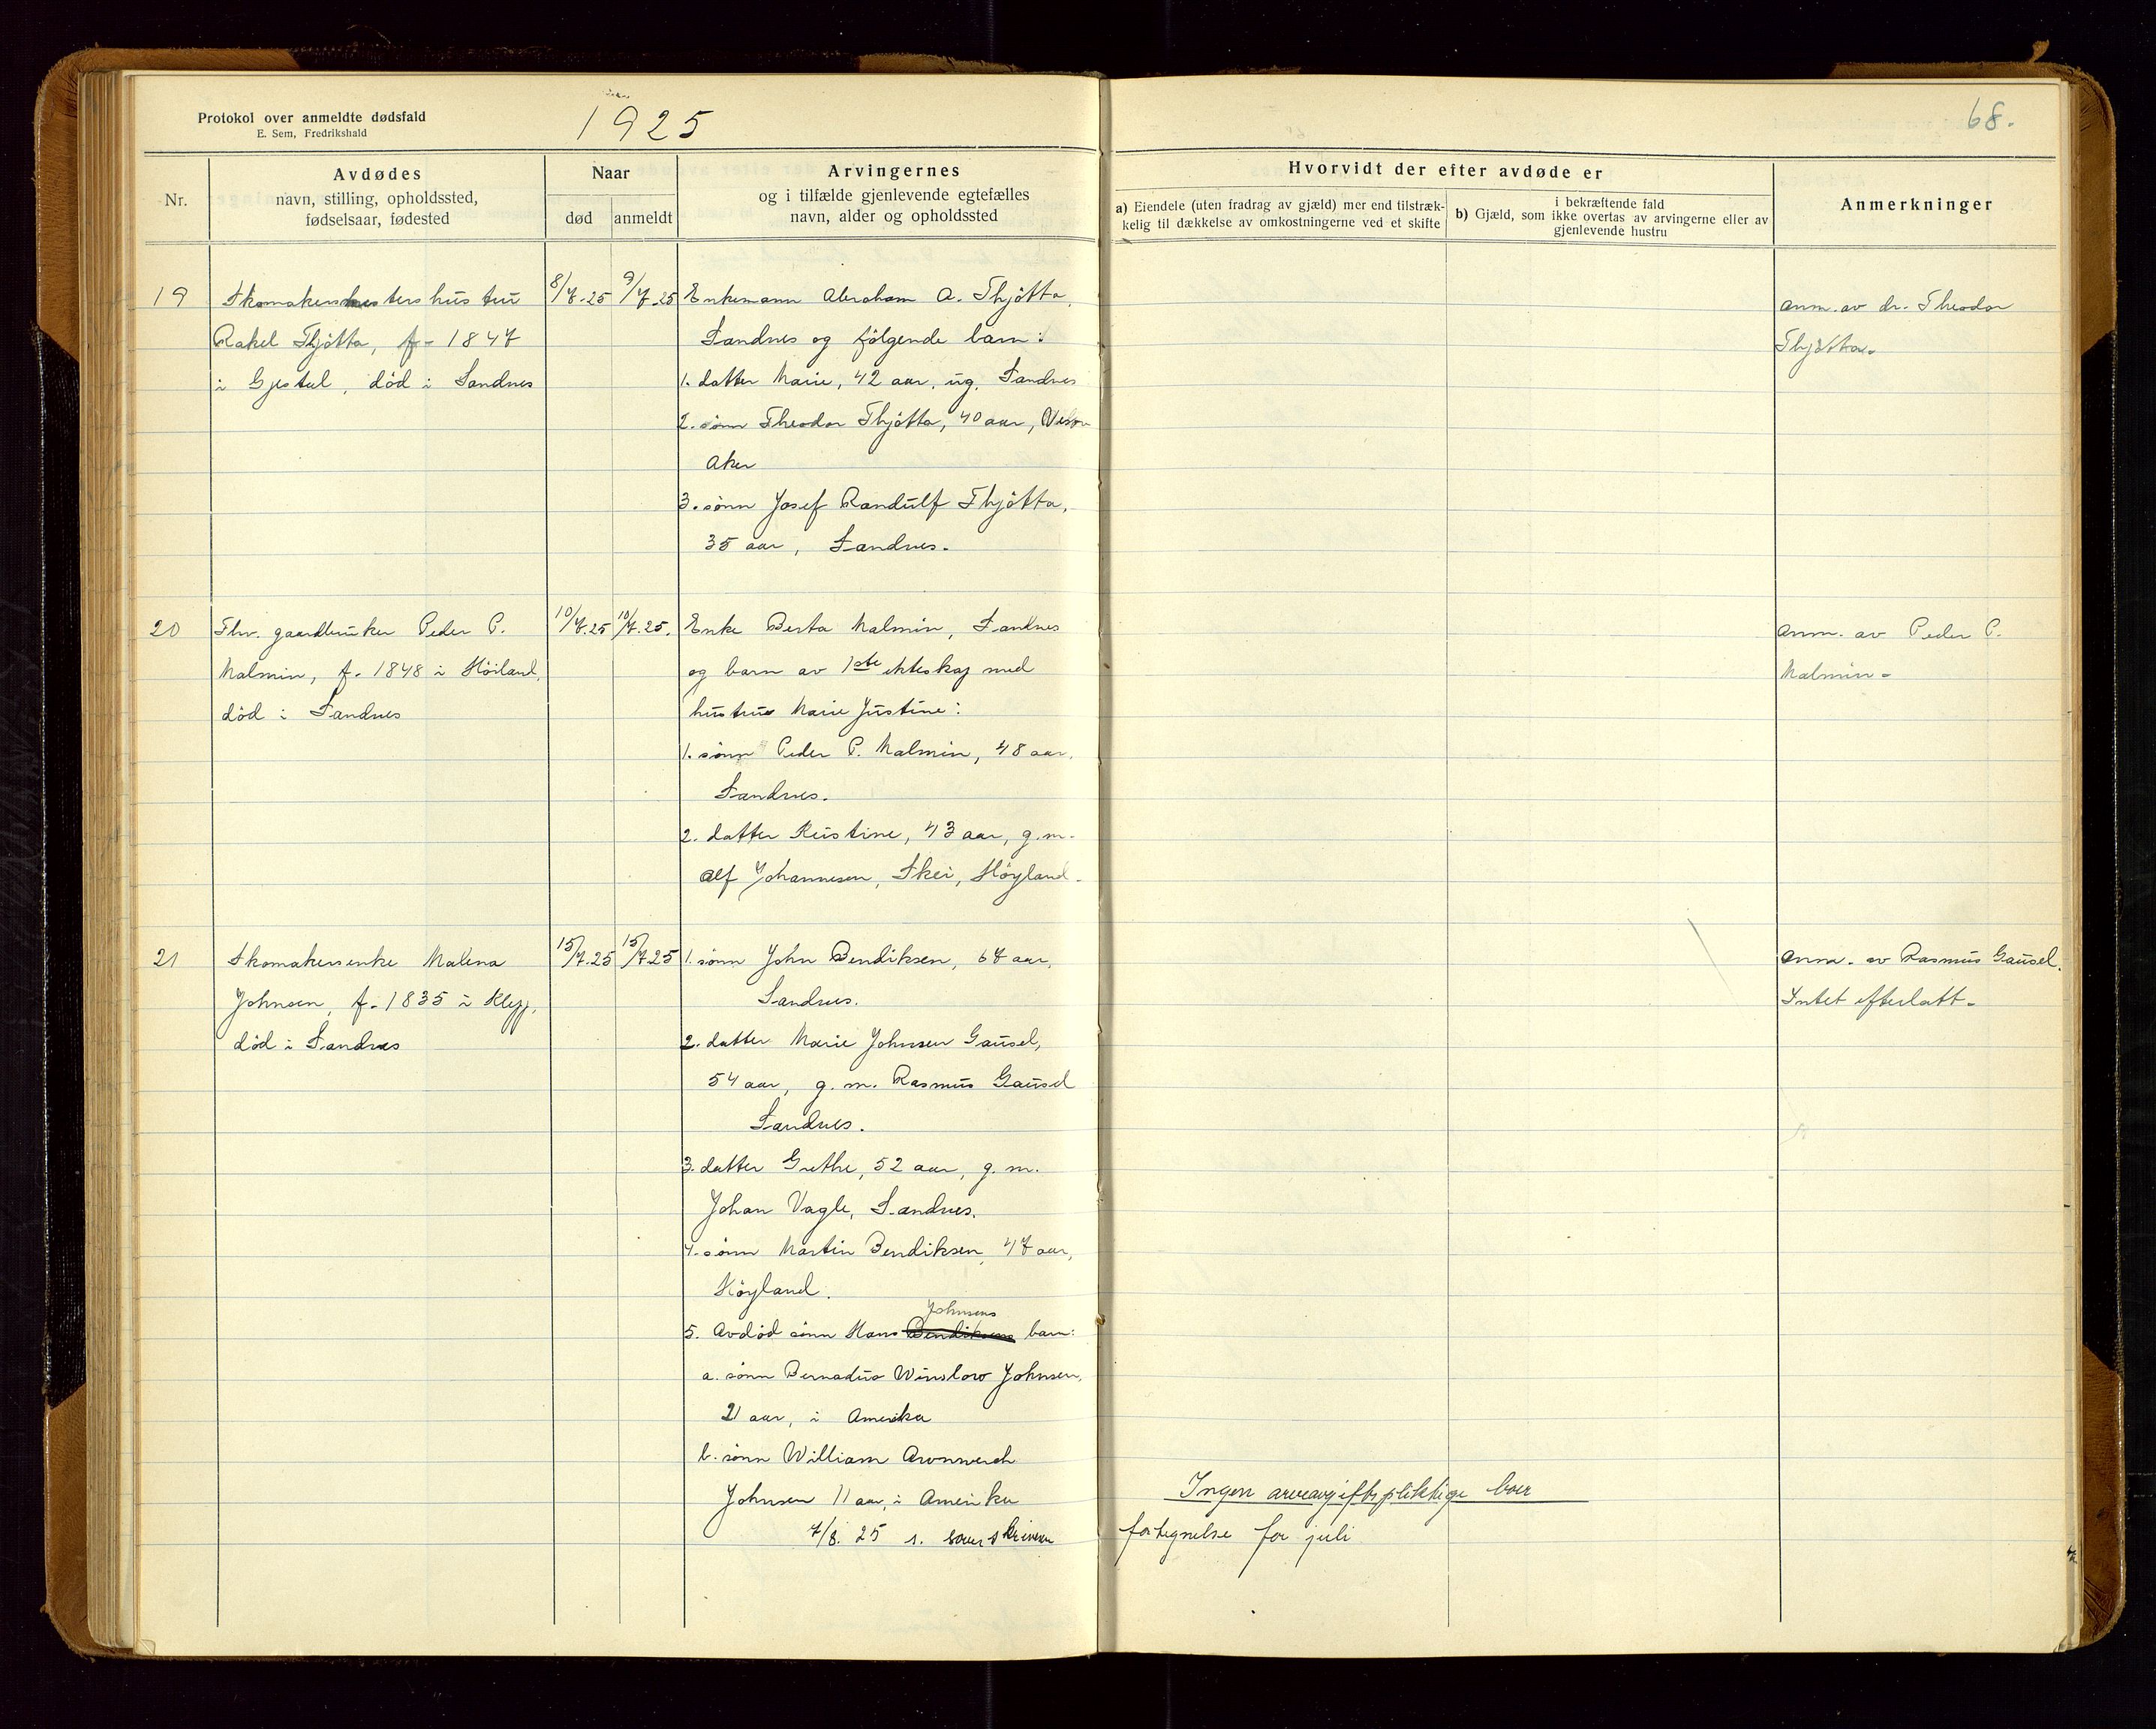 Protokol over anmeldte dødsfald
E. Sem, Fredrikshald
1925
68.
Nr.
Avdødes
navn, stilling, opholdssted,
fødselsaar, fødested
Naar
død
anmeldt
Arvingernes
og i tilfælde gjenlevende egtefælles
navn, alder og opholdssted
Hvorvidt der efter avdøde er
a) Eiendele (uten fradrag av gjæld) mer end tilstræk-
kelig til dækkelse av omkostningerne ved et skifte
i bekræftende fald
b) Gjæld, som ikke overtas av arvingerne eller av
gjenlevende hustru
Anmerkninger
19
Skomakermestershustru
Rakel Thjötta, f. 1847
i Gjestal, död i Sandnes
8/7.25
9/7.25
Enkemann Abraham A. Thjötta,
Sandnes og fölgende barn:
1. datter Marie, 42 aar, ug. Sandnes
2. sönn Theodor Thjötta, 40 aar,
Aker
3. sönn Josef Randulf Thjötta,
35 aar, Sandnes.
anm. av dr. Theodor
Thjötta.
20
Fhv. gaardbruker Peder P.
Malmin, f. 1848 i Höiland,
död i Sandnes
10/7.25
10/7.25.
Enke Berta Malmin, Sandnes
og barn av 1ste ekteskap med
hustru Marie Justine:
1. sönn Peder P. Malmin, 48 aar,
Sandnes.
2. datter Kristine, 43 aar, g.m.
Alf Johannesen, Skei, Höyland.
anm. av Peder P.
Malmin.
21
Skomakersenke Malena
Johnsen, f. 1835 i Klepp,
död i Sandnes
15/7.25
15/7.25
1. sönn John Bendiksen, 67 aar,
Sandnes.
2. datter Marie Johnsen Gausel,
54 aar, g. m. Rasmus Gausel
Sandnes.
3. datter Grethe, 52 aar, g. m.
Johan Vagle, Sandnes.
4. sönn Martin Bendiksen, 47 aar,
Höyland.
Johnsens
5. Avdöd sönn Hans Bendiksens barn:
a. sönn Bernadus Winslow Johnsen,
21 aar, i Amerika
b. sönn William
Johnsen 11 aar, i Amerika
7/8. 25 s. sorenskriveren
anm. av Rasmus Gausel.
Intet efterlatt.
Ingen arveavgiftspliktige boer
fortegnelse for juli